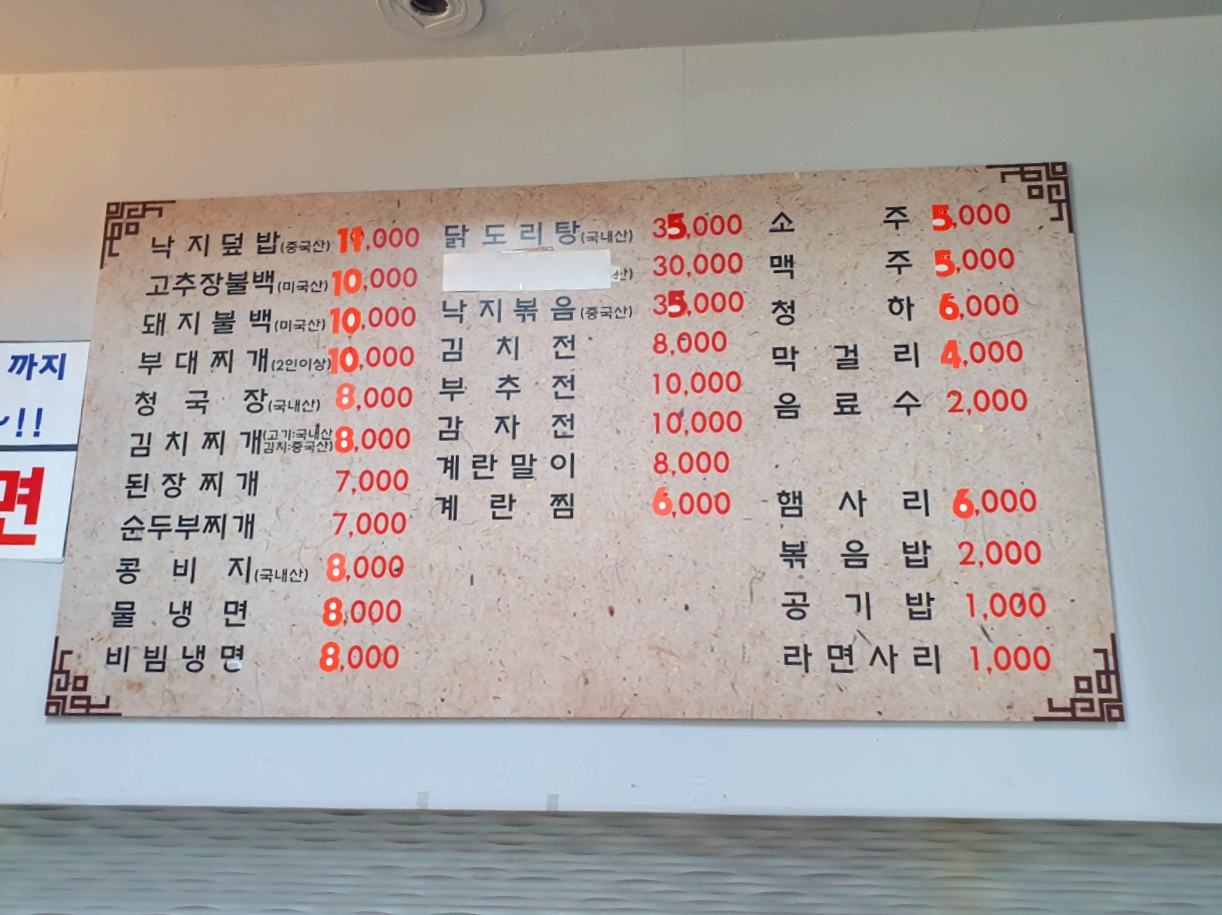 까지
~!!
면
낙지덮밥(중국산) 11,000
고추장불백(미국산) 10,000
돼지불백(미국산) 10,000
부대찌개(2인이상) 10,000
청국장(국내산) 8,000
김치찌개(고기:국내산 김치:중국산) 8,000
된장찌개 7,000
순두부찌개 7,000
콩비지(국내산) 8,000
물냉면 8,000
비빔냉면 8,000
닭도리탕(국내산) 35,000
30,000
낙지볶음(중국산) 35,000
김치전 8,000
부추전 10,000
감자전 10,000
계란말이 8,000
계란찜 6,000
소주 5,000
맥주 5,000
청하 6,000
막걸리 4,000
음료수 2,000
햄사리 6,000
볶음밥 2,000
공기밥 1,000
라면사리 1,000